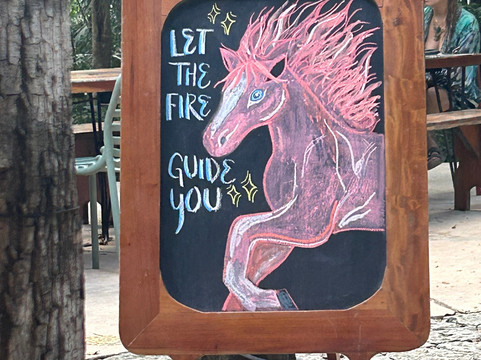 LET
THE
FIRE
GUIDE
YOU